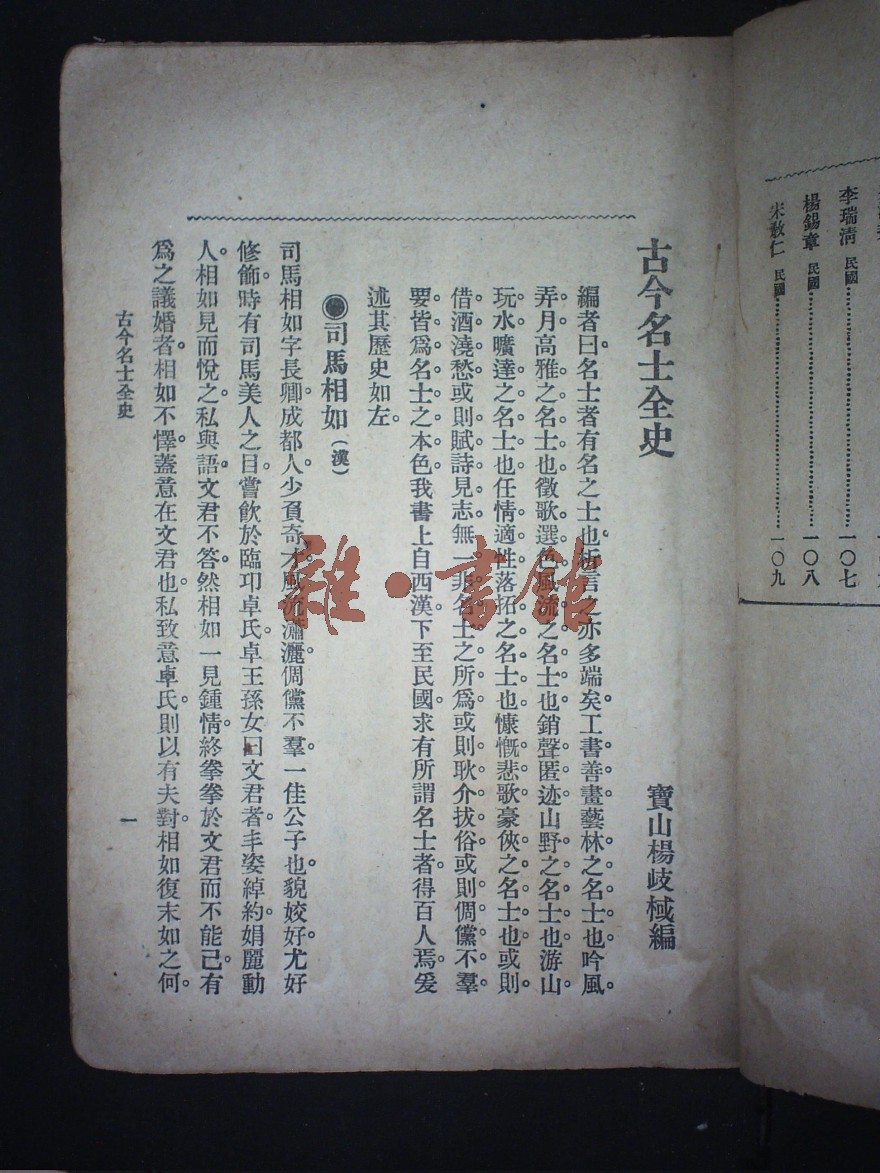 李瑞清 民國……一〇七
楊錫章 民國……一〇八
宋敎仁 民國……一〇九
古今名士全史
寶山楊歧棫編
編者曰名士者有名之士也。析言之亦多端矣。工書善畫藝林之名士也。吟風。
弄月高雅之名士也。徵歌選色風流之名士也。銷聲匿迹山野之名士也。游山
玩水曠達之名士也。任情適性落拓之名士也。慷慨悲歌豪俠之名士也。或則
借酒澆愁。或則賦詩見志。無一非名士之所爲。或則耿介拔俗。或則倜儻不羣。
要皆爲名士之本色。我書上自西漢。下至民國。求有所謂名士者。得百人焉。爰
述其歷史如左。
●司馬相如（漢）
司馬相如字長卿。成都人。少負奇才。風流瀟灑。倜儻不羣。一佳公子也。貌姣好。尤好
修飾。時有司馬美人之目。嘗飲於臨卭卓氏。卓王孫女曰文君者。丰姿綽約。娟麗動
人。相如見而悅之。私與語。文君不答。然相如一見鍾情。終拳拳於文君而不能已。有
爲之議婚者。相如不懌。蓋意在文君也。私致意卓氏。則以有夫對。相如復末如之何。
古今名士全史
一
雜·書館